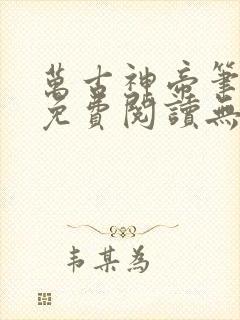 萬古神帝筆
免費閱讀無
韦某為